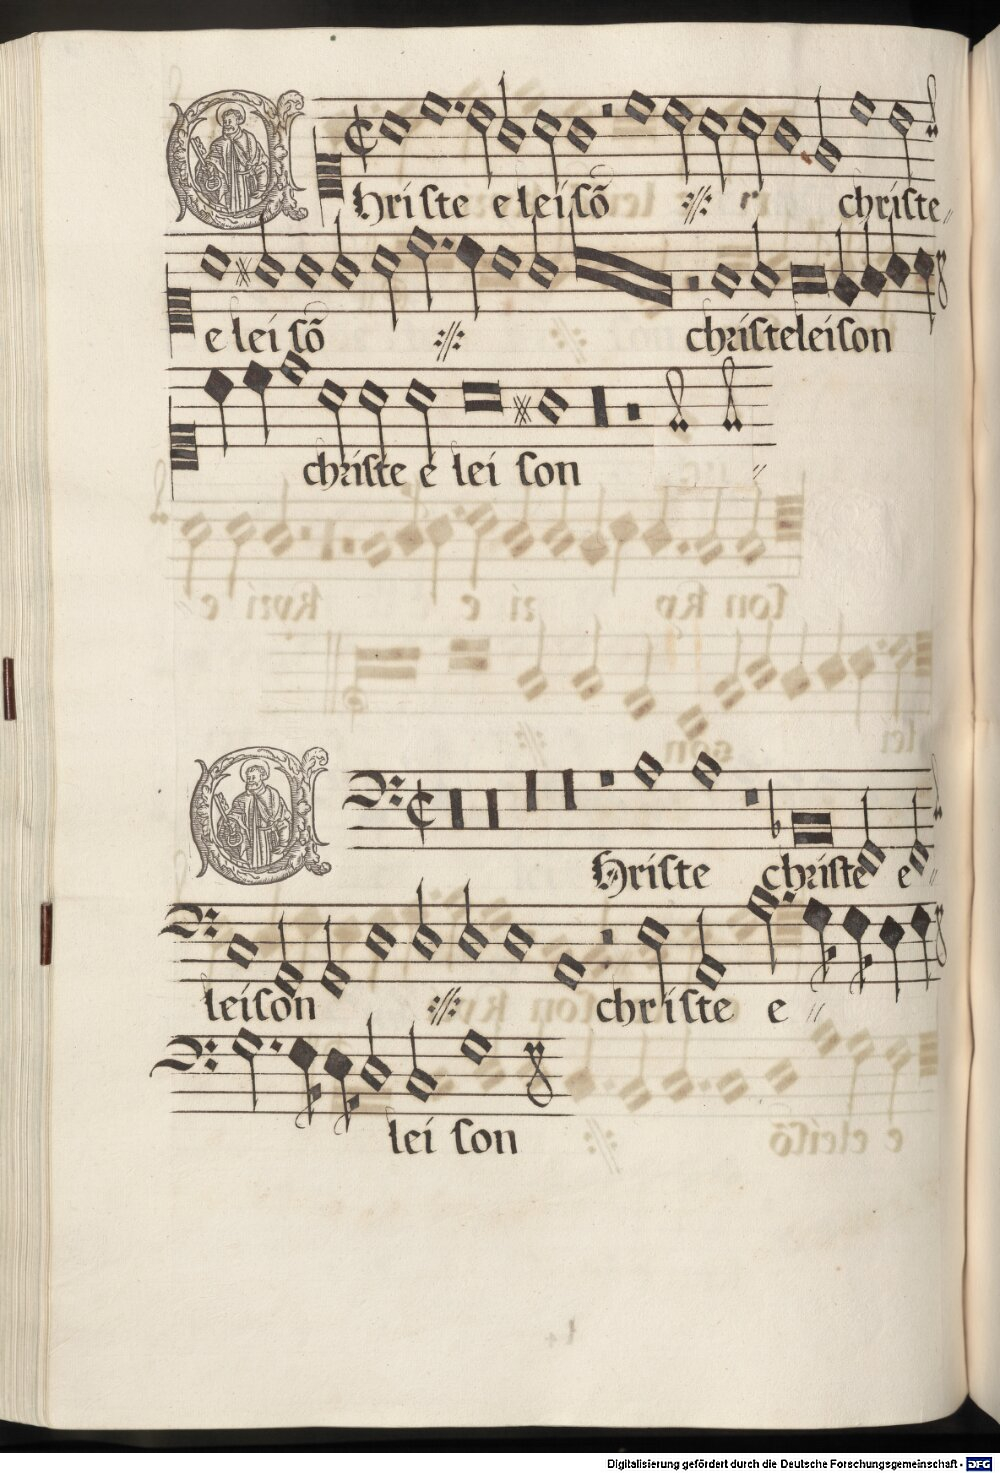 CHriste eleisō christe
eleisō christeleison
christe e leison
CHriste christe e
leison christe e
lei son
Digitalisierung gefördert durch die Deutsche Forschungsgemeinschaft - DFG